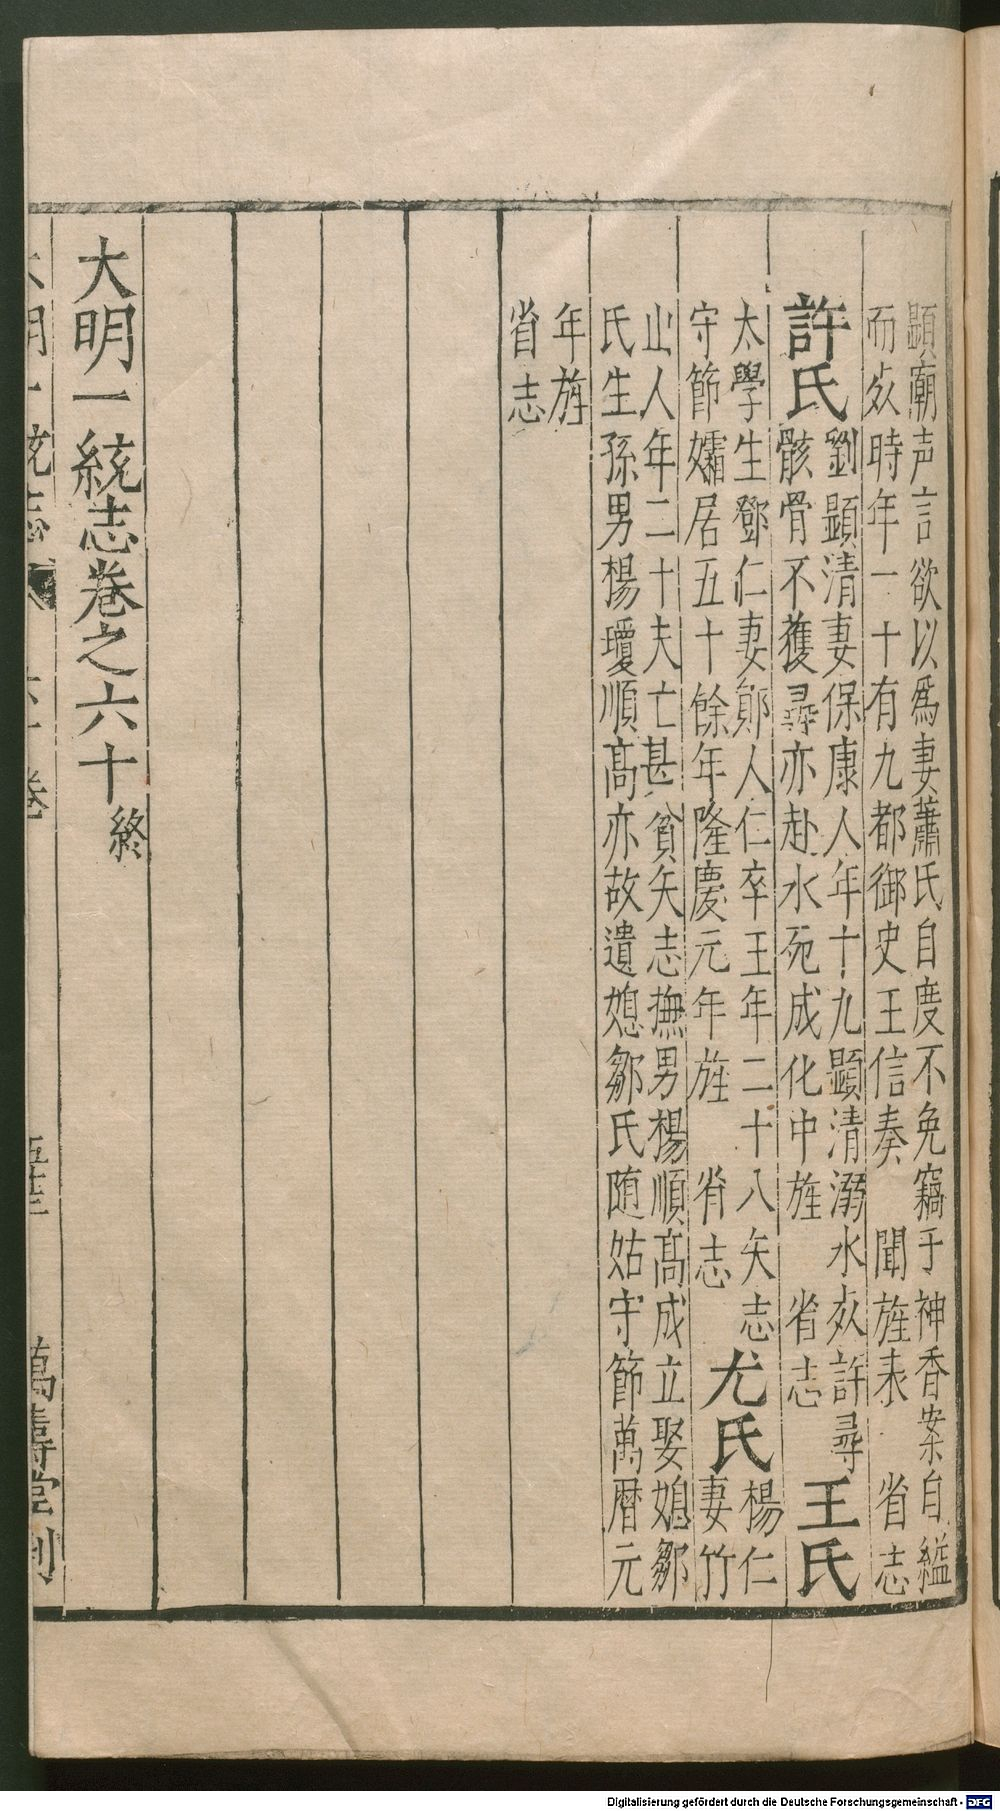 顕廟声言欲以爲妻蕭氏自度不免竊于神香案自縊
而㱙時年一十有九都御史王信奏 聞旌表 省志
許氏
劉顕清妻保康人年十九顕清溺水㱙許尋
骸骨不獲尋亦赴水死成化中旌 省志
王氏
太學生鄧仁妻鄖人仁卒王年二十八矢志
守節孀居五十餘年隆慶元年旌 省志
尤氏
楊仁
妻竹
山人年二十夫亡甚貧矢志撫男楊順髙成立娶媳鄒
氏生孫男楊瓊順髙亦故遺媳鄒氏随姑守節萬曆元
年旌
省志
大明一統志卷之六十終
大明一統志 六十卷
萬壽堂刊
Digitalisierung gefördert durch die Deutsche Forschungsgemeinschaft - DFG